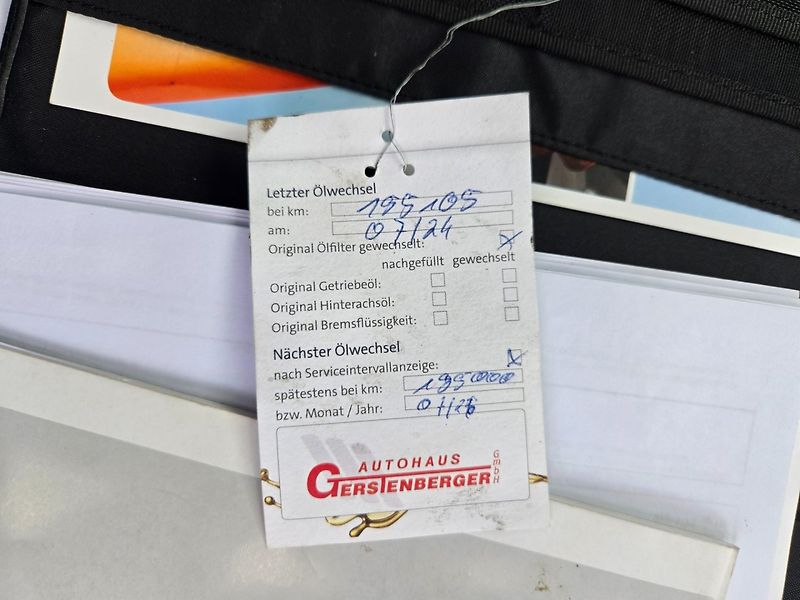 Letzter Ölwechsel
bei km: 195105
am: 07/24
Original Ölfilter gewechselt: X
nachgefüllt gewechselt
Original Getriebeöl:
Original Hinterachsöl:
Original Bremsflüssigkeit:
Nächster Ölwechsel
nach Serviceintervallanzeige: X
spätestens bei km:
bzw. Monat / Jahr:
AUTOHAUS
GERSTENBERGER
GmbH